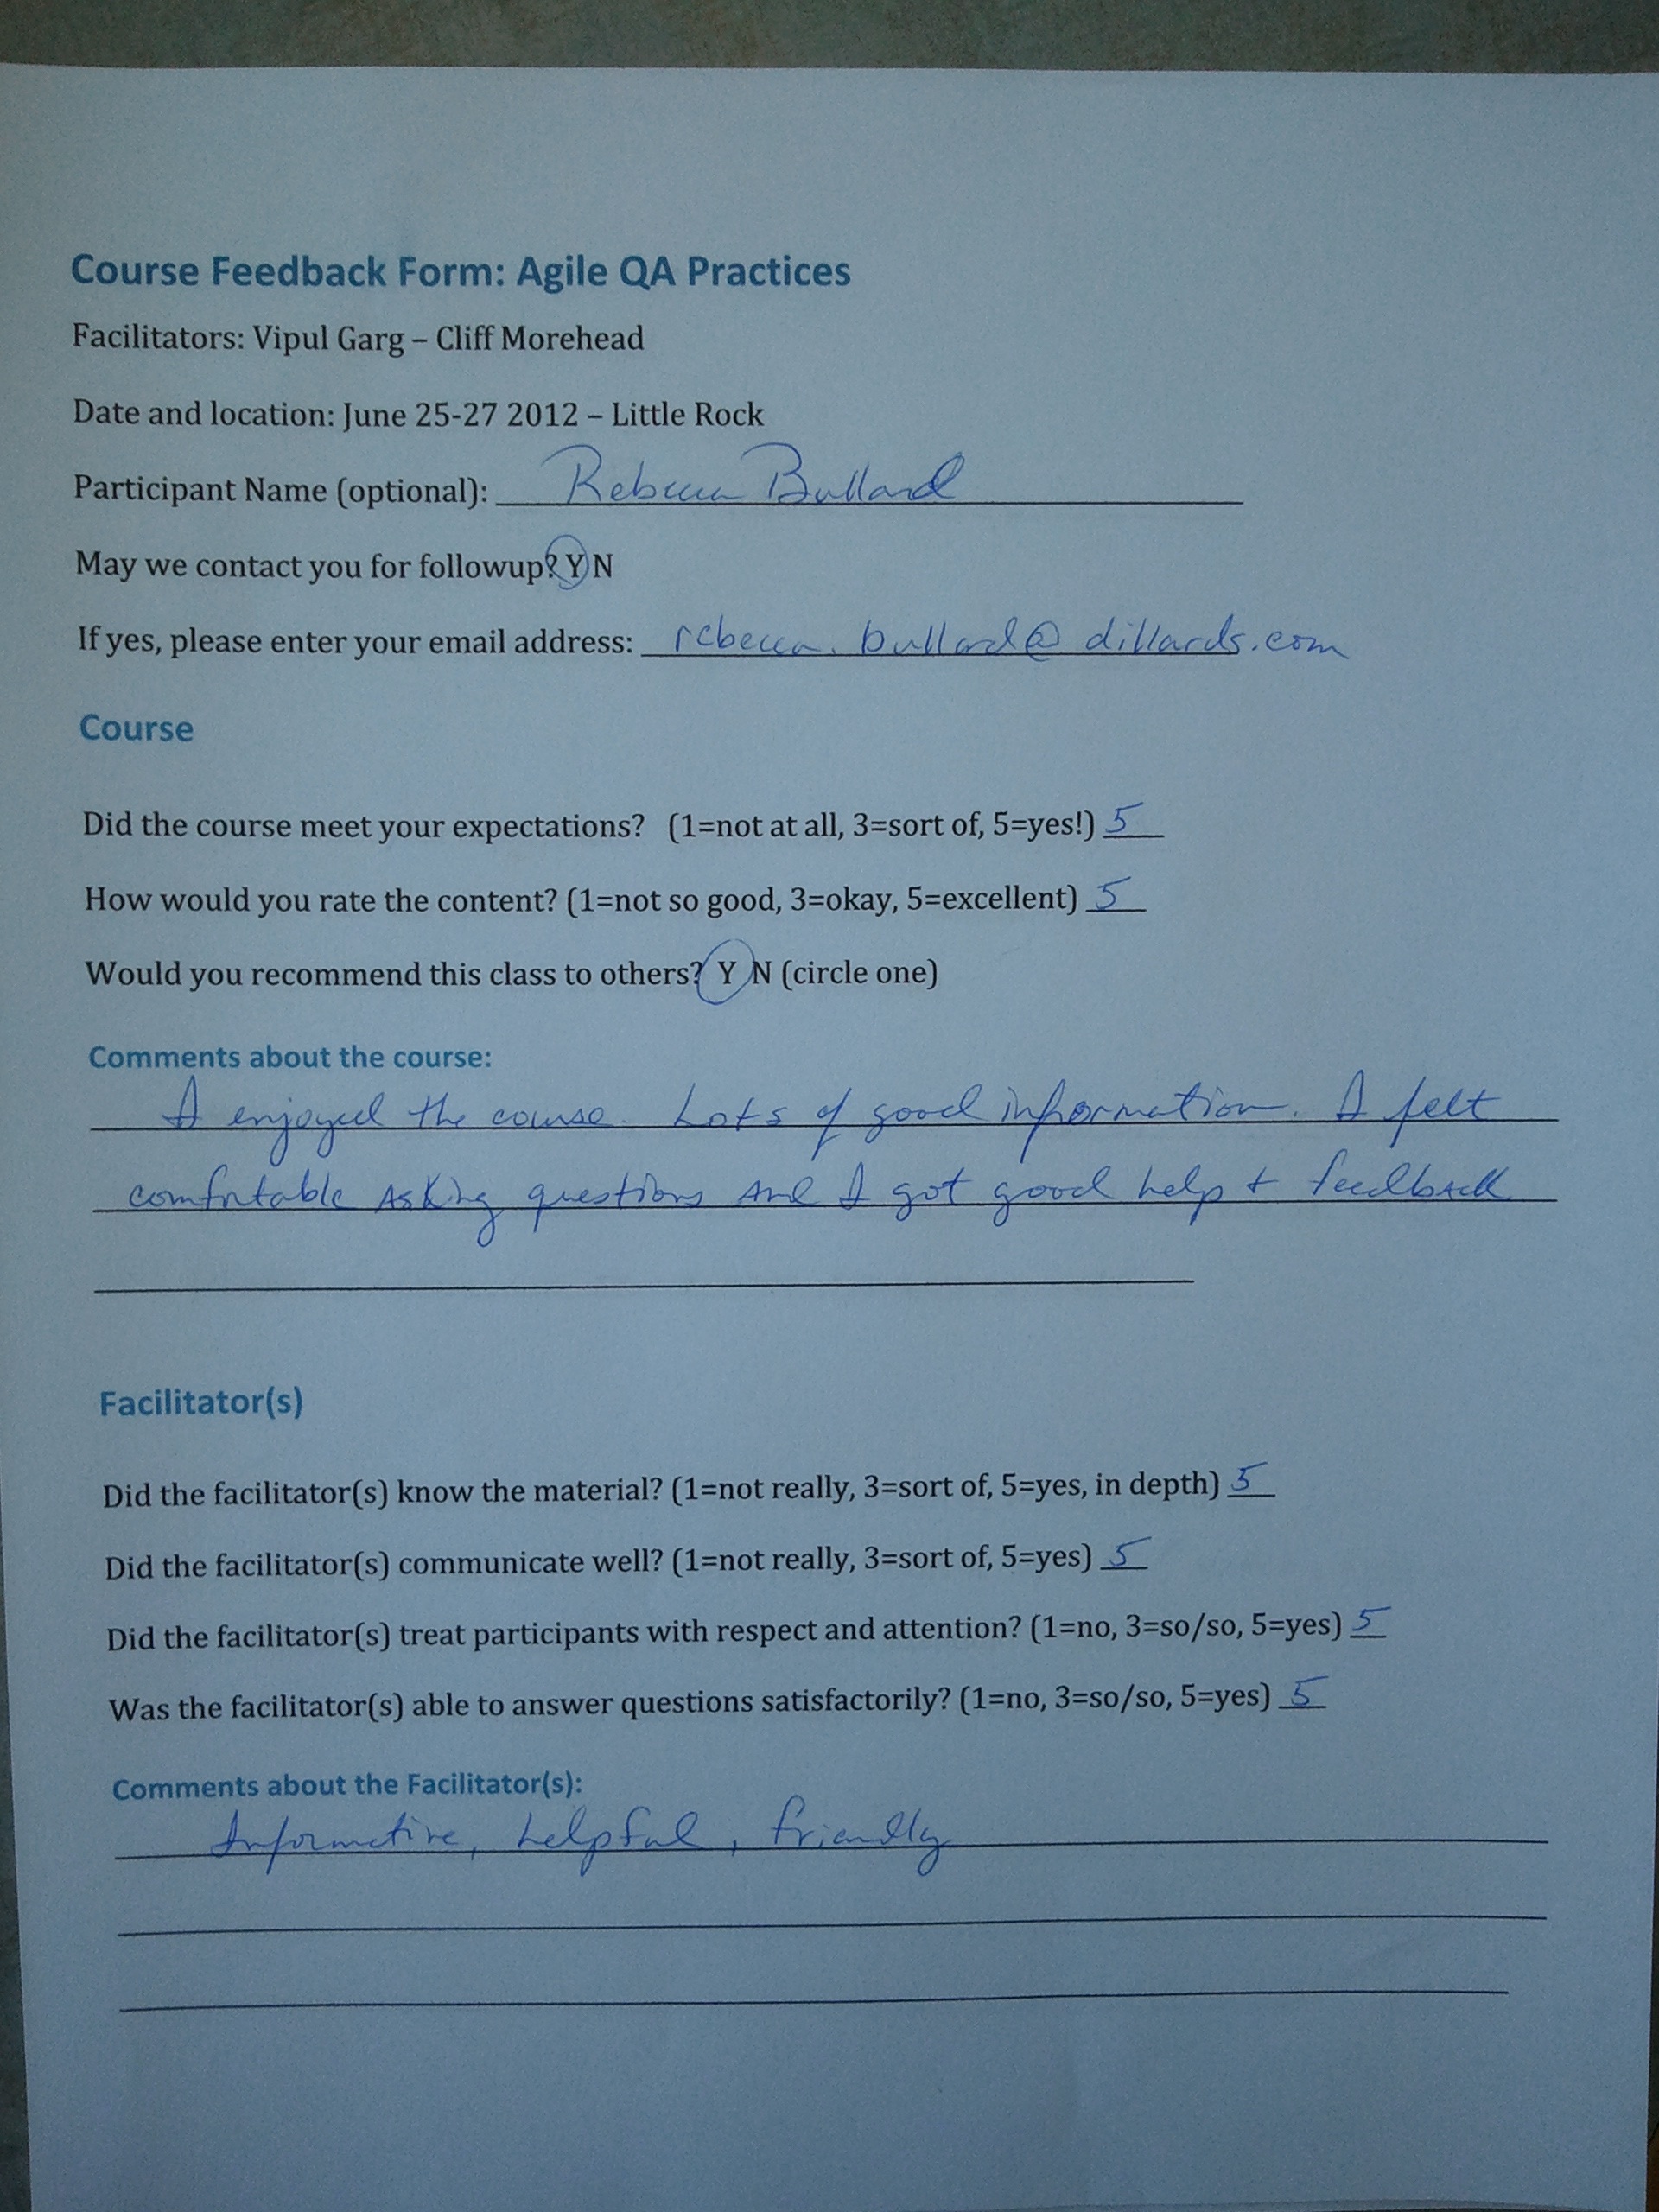 Course Feedback Form: Agile QA Practices
Facilitators: Vipul Garg – Cliff Morehead
Date and location: June 25-27 2012 – Little Rock
Participant Name (optional): Rebecca Bullard
May we contact you for followup? Y N
If yes, please enter your email address: rebecca.bullard@dillards.com
Course
Did the course meet your expectations? (1=not at all, 3=sort of, 5=yes!) 5
How would you rate the content? (1=not so good, 3=okay, 5=excellent) 5
Would you recommend this class to others? Y N (circle one)
Comments about the course:
I enjoyed the course. Lots of good information. I felt
comfortable asking questions and I got good help + feedback
Facilitator(s)
Did the facilitator(s) know the material? (1=not really, 3=sort of, 5=yes, in depth) 5
Did the facilitator(s) communicate well? (1=not really, 3=sort of, 5=yes) 5
Did the facilitator(s) treat participants with respect and attention? (1=no, 3=so/so, 5=yes) 5
Was the facilitator(s) able to answer questions satisfactorily? (1=no, 3=so/so, 5=yes) 5
Comments about the Facilitator(s):
Informative, helpful, friendly